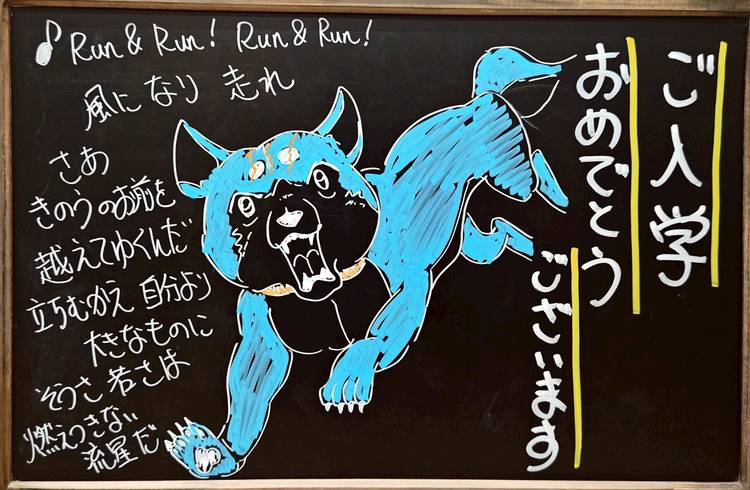 ♪ Run & Run! Run & Run!
風になり 走れ
さあ
きのうのお前を
越えてゆくんだ
立ちむかえ 自分より
大きなものに
そうさ 若さは
燃えつきない
流星だ
ご入学
おめでとう
ございます